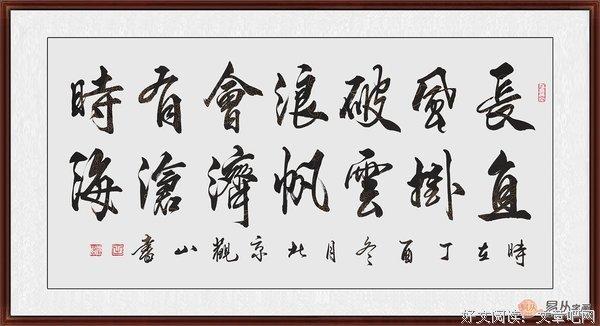 長風破浪會有時
直掛雲帆濟滄海
時在丁酉冬月北京觀山書
易从字画
好文阅读：文章吧网